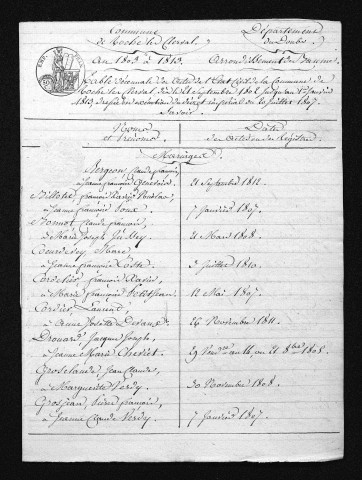 Commune
de Roche les Clerval
Département
du Doubs
An 1803 à 1813
Arrondissement de Baume
Table décennale des Actes de l'Etat Civil de la Commune de
Roche les Clerval, depuis le 21 Septembre 1802 jusqu'au 1er Janvier
1813 dressée en exécution du décret impérial du 20 Juillet 1807.
Savoir
Noms
et Prénoms
Dates
des Actes des Registres
Mariages
Bergeon Claude françois,
à Jeanne françoise 21 Septembre 1812.
Billotte, françois Xavier
à Jeanne françoise 7 Janvier 1807.
Bonnot Claude françois,
à Marie Joseph 21 Mars 1808.
Marc
à Jeanne françoise 5 Juillet 1810.
Cordelier françois Xavier,
à Marie françoise Petitjean. 12 Mai 1807.
Cordier Laurent,
à Anne Josette 26 Novembre 1811.
Drouard, Jacques Joseph,
à Jeanne Marie 29 Vend.re an 14, ou 21 8bre 1805.
Groslaude, Jean Claude,
à Marguerite Verdy. 30 Novembre 1808.
Grosjean, Pierre françois,
à Jeanne Claude Verdy. 7 Janvier 1807.